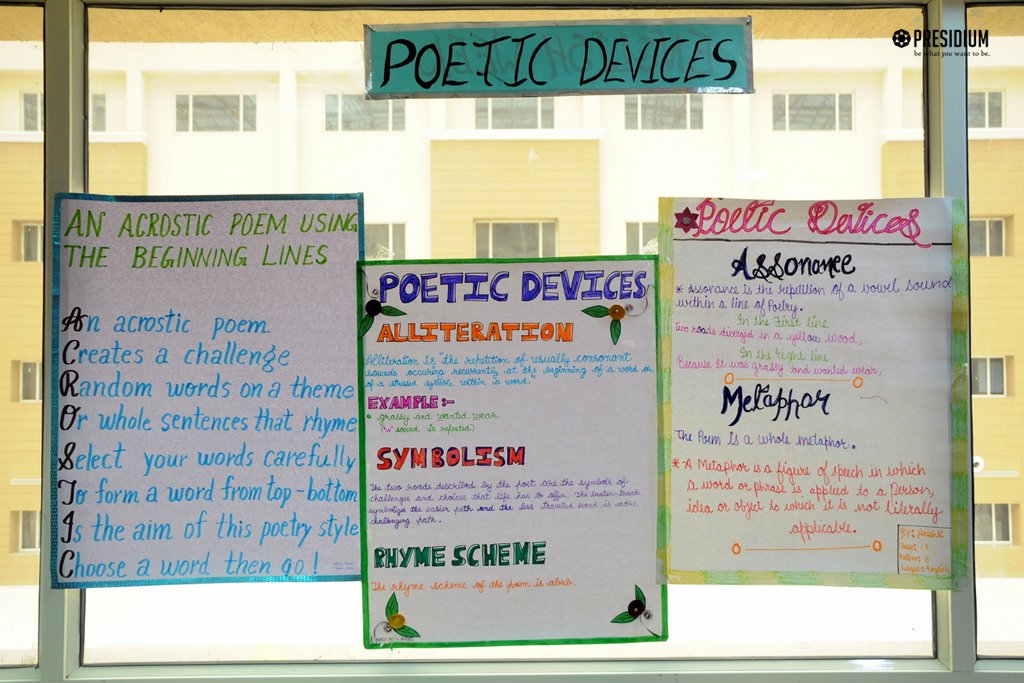 PRESIDIUM
be what you want to be.
POETIC DEVICES
AN ACROSTIC POEM USING
THE BEGINNING LINES
An acrostic poem.
Creates a challenge
Random words on a theme
Or whole sentences that rhyme
Select your words carefully
To form a word from top-bottom
Is the aim of this poetry style
Choose a word then go!
POETIC DEVICES
ALLITERATION
Alliteration is "the repetition of usually consonant
sounds occuring recurrently at the beginning of a word or
of a stressed syllable within a word."
EXAMPLE:-
grassy and wanted wear
('w' sound is repeated)
SYMBOLISM
The two roads described by the poet are the symbols of
challenges and choices that life has to offer. The beaten track
symbolizes the easier path and the less travelled road is more
challenging path.
RHYME SCHEME
The rhyme scheme of the poem is abaab.
MADE BY:
Poetic Devices
Assonance
* Assonance is the repetition of a vowel sound
within a line of Poetry.
In the First line
Two roads diverged in a yellow wood,
In the eight line
Because it was grassy and wanted wear,
Metaphor
The Poem is a whole metaphor.
* A Metaphor is a figure of speech in which
a word or phrase is applied to a Person,
idea or object to which it is not literally
applicable.
By:
Class: IX
Subject: English